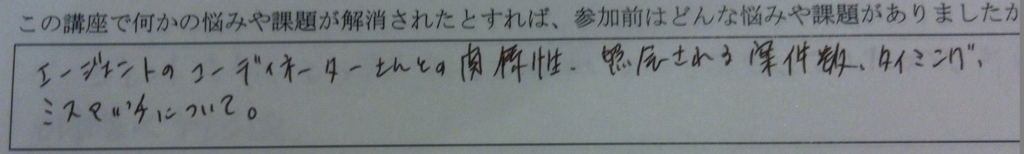 この講座で何かの悩みや課題が解消されたとすれば、参加前はどんな悩みや課題がありましたか
エージェントのコーディネーターさんとの関係性、照会される案件数、タイミング、
ミスマッチについて。